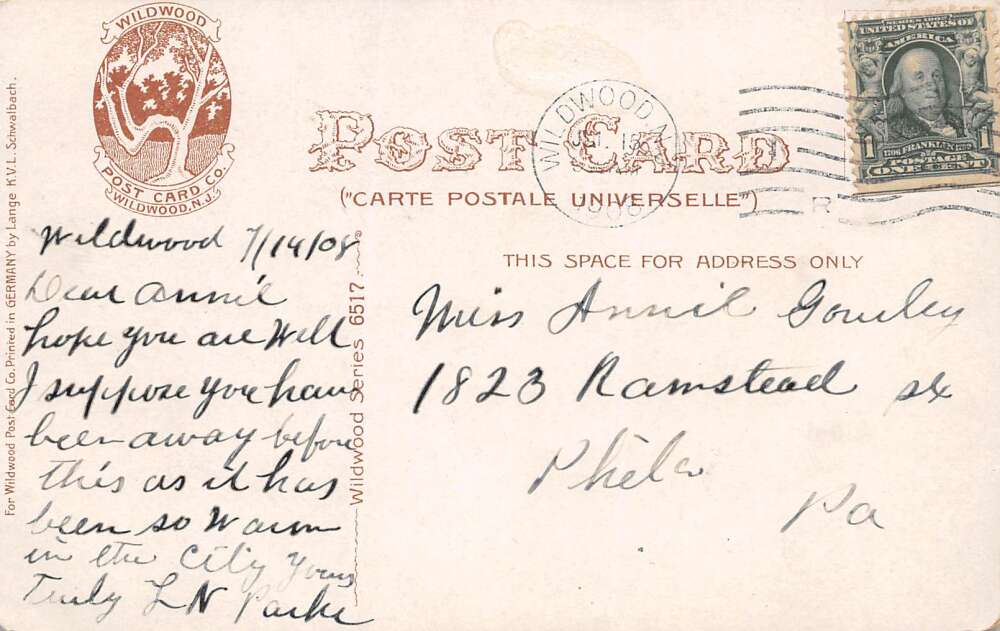 WILDWOOD
POST CARD CO.
WILDWOOD, N.J.
For Wildwood Post Card Co. Printed in GERMANY by Lange K.V.L. Schwalbach.
POST CARD
("CARTE POSTALE UNIVERSELLE")
WILDWOOD, N.
1908
R
SERIES 1902
UNITED STATES OF
AMERICA
1706 FRANKLIN 1790
1 POSTAGE 1
ONE CENT
THIS SPACE FOR ADDRESS ONLY
Wildwood Series 6517
Wildwood 7/14/08
Dear Annie
hope you are Well
I suppose you have
been away before
this as it has
been so Warm
in the City Yours
Truly L N Parke
Miss Annie Gourley
1823 Ramstead St
Phila
Pa